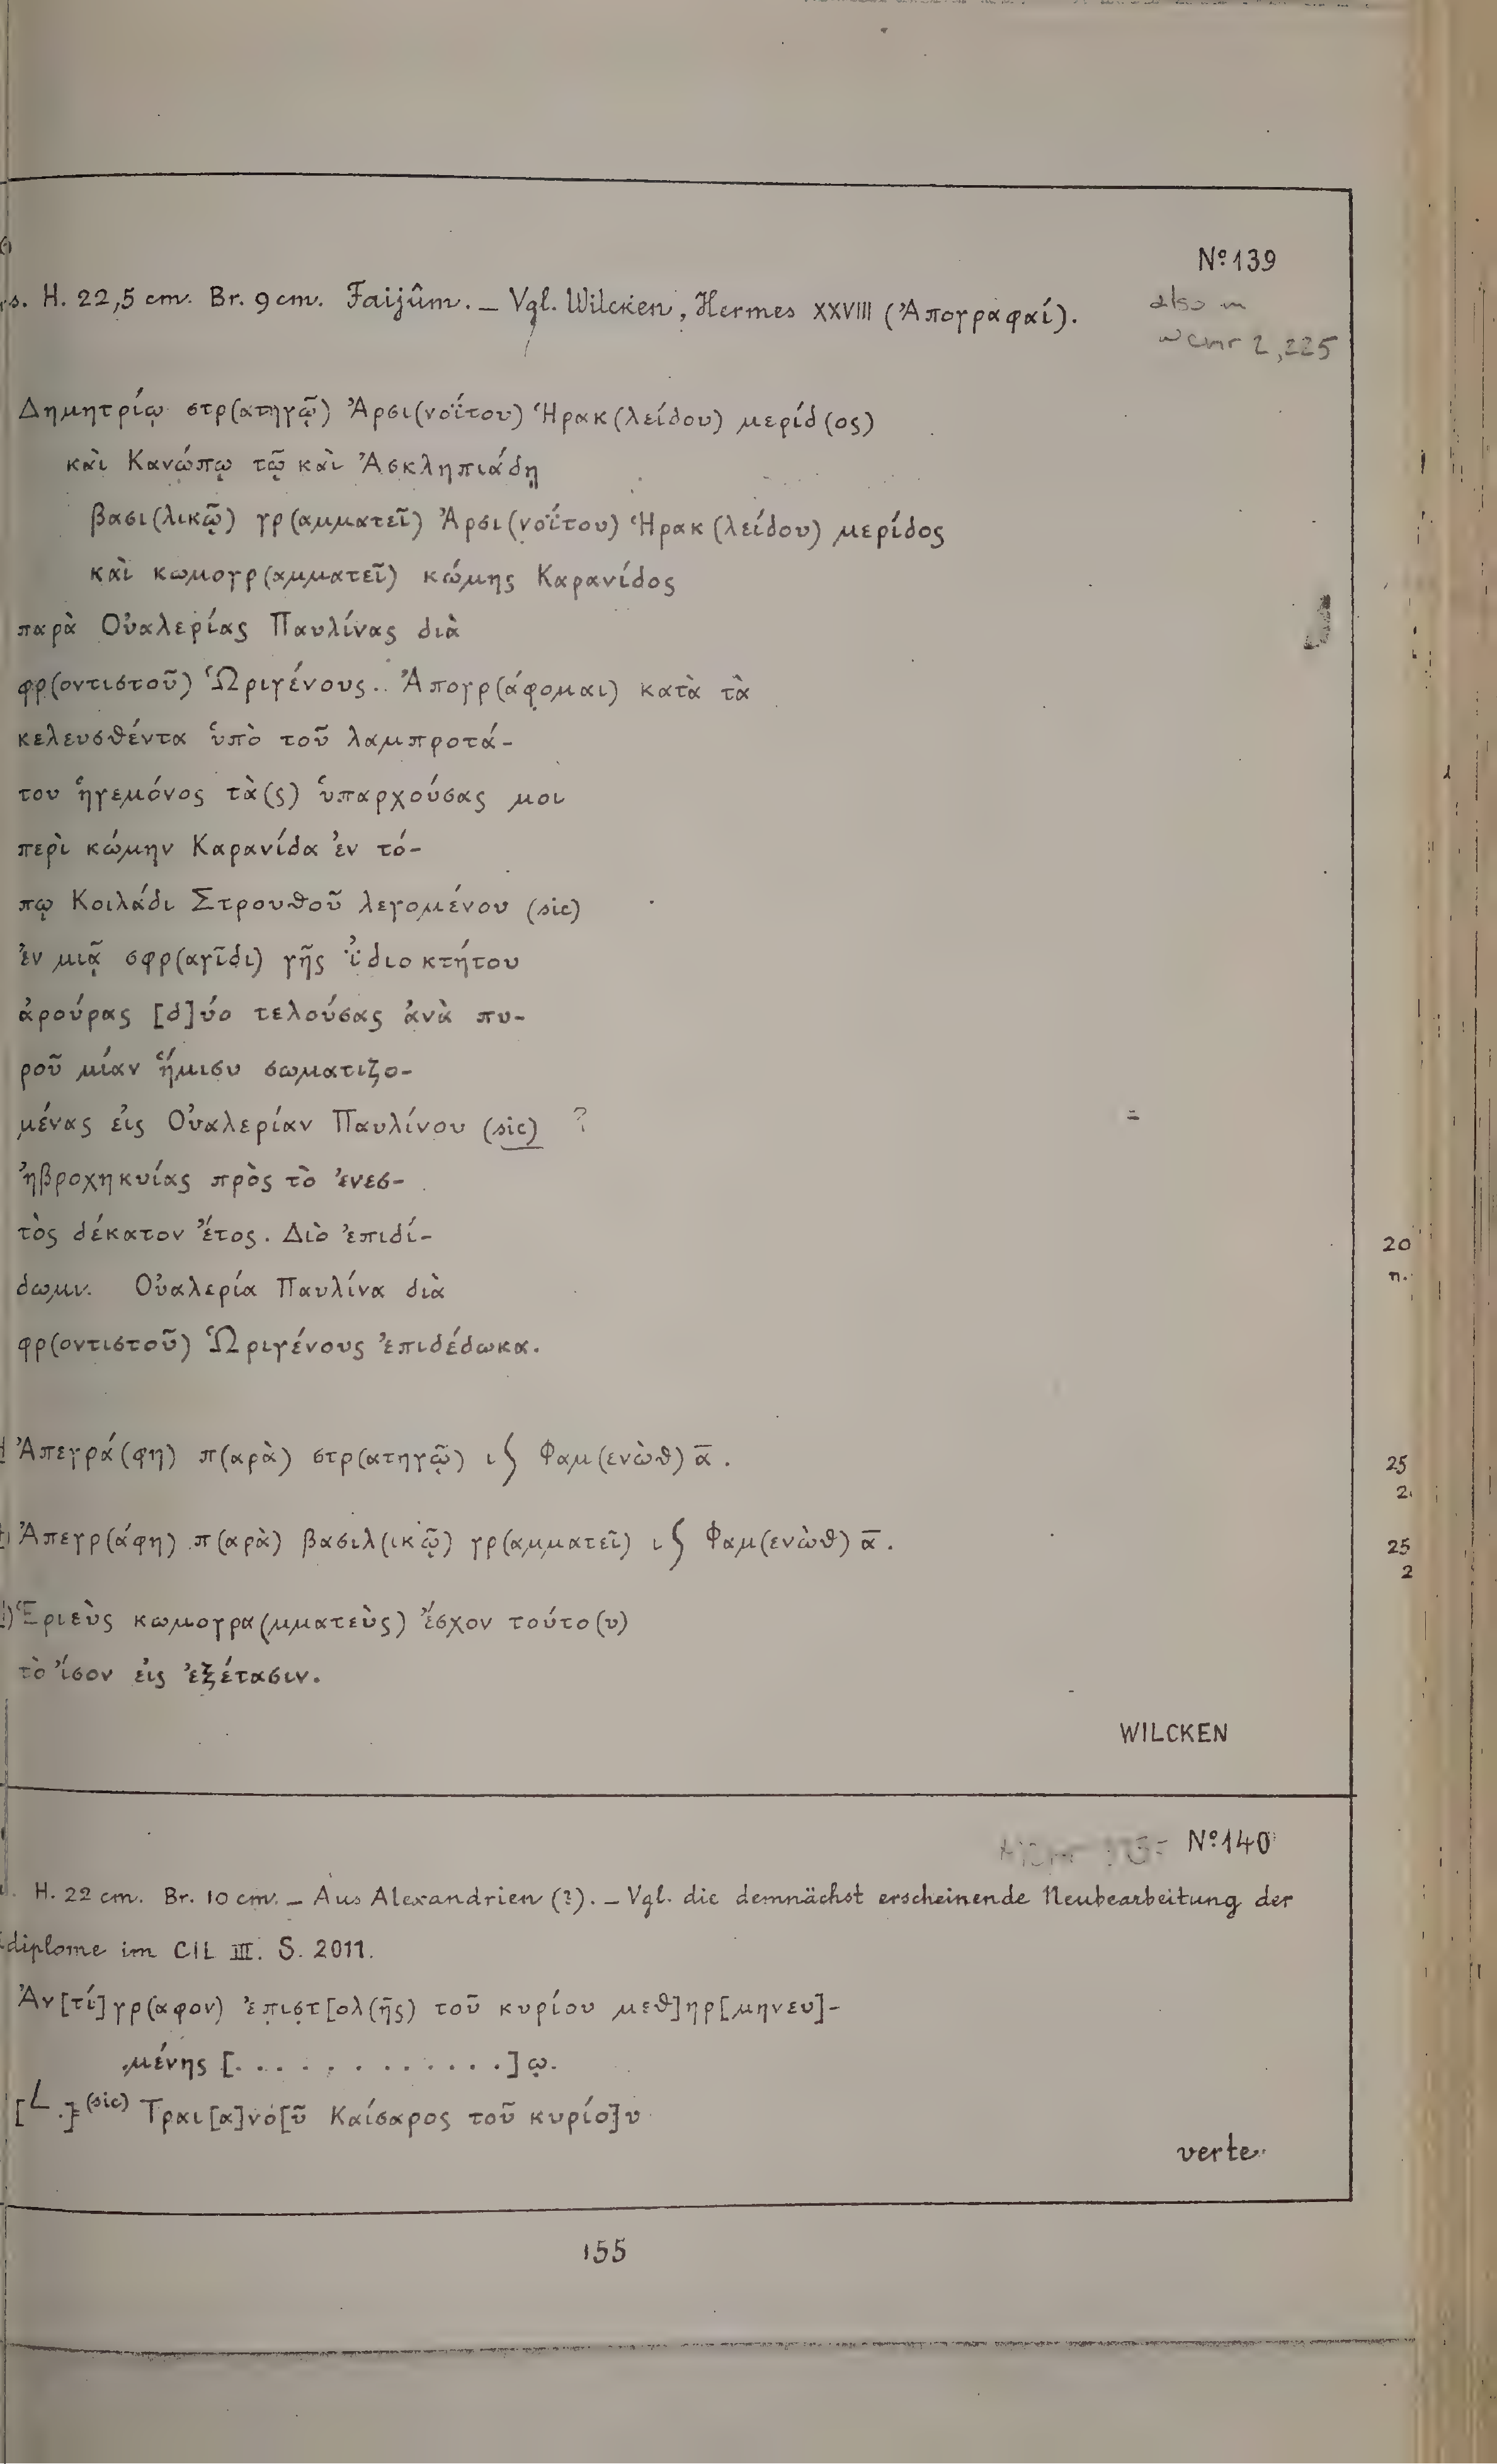 Nº 139
s. H. 22,5 cm. Br. 9 cm. Faijûm. – Vgl. Wilcken, Hermes XXVIII (Ἀπογραφαί).
also in
2,225
Δημητρίῳ στρ(ατηγῷ) Ἀρσι(νοΐτου) Ἡρακ(λείδου) μερίδ(ος)
καὶ Κανώπῳ τῷ καὶ Ἀσκληπιάδῃ
βασι(λικῷ) γρ(αμματεῖ) Ἀρσι(νοΐτου) Ἡρακ(λείδου) μερίδος
καὶ κωμογρ(αμματεῖ) κώμης Καρανίδος
παρὰ Οὐαλερίας Παυλίνας διὰ
φρ(οντιστοῦ) Ὡριγένους.. Ἀπογρ(άφομαι) κατὰ τὰ
κελευσθέντα ὑπὸ τοῦ λαμπροτά-
του ἡγεμόνος τὰ(ς) ὑπαρχούσας μοι
περὶ κώμην Καρανίδα ἐν τό-
πῳ Κοιλάδι Στρουθοῦ λεγομένου (sic)
ἐν μιᾷ σφρ(αγῖδι) γῆς ἰ̈διοκτήτου
ἀρούρας [δ]ύο τελούσας ἀνὰ πυ-
ροῦ μίαν ἥμισυ σωματιζο-
μένας εἰς Οὐαλερίαν Παυλίνου (sic) ?
ἠβροχηκυίας πρὸς τὸ ἐνεσ-
τὸς δέκατον ἔτος. Διὸ ἐπιδί-
δωμι. Οὐαλερία Παυλίνα διὰ
φρ(οντιστοῦ) Ὡριγένους ἐπιδέδωκα.
Ἀπεγρά(φη) π(αρὰ) στρ(ατηγῷ) ι ʃ Φαμ(ενὼθ) α̅.
Ἀπεγρ(άφη) π(αρὰ) βασιλ(ικῷ) γρ(αμματεῖ) ι ʃ Φαμ(ενὼθ) α̅.
) Ἑριεὺς κωμογρα(μματεὺς) ἔσχον τούτο(υ)
τὸ ἴσον εἰς ἐξέτασιν.
WILCKEN
Nº 140
H. 22 cm. Br. 10 cm. – Aus Alexandrien (?). – Vgl. die demnächst erscheinende Neubearbeitung der
diplome im CIL III. S. 2011.
Ἀν[τί]γρ(αφον) ἐπιστ[ολ(ῆς) τοῦ κυρίου μεθ]ηρ[μηνευ]-
μένης [. . . . . . . . . . . . .]ῳ.
[L .] (sic) Τραι[α]νο[ῦ Καίσαρος τοῦ κυρίο]υ
verte
155
20
n.
25
2
25
2